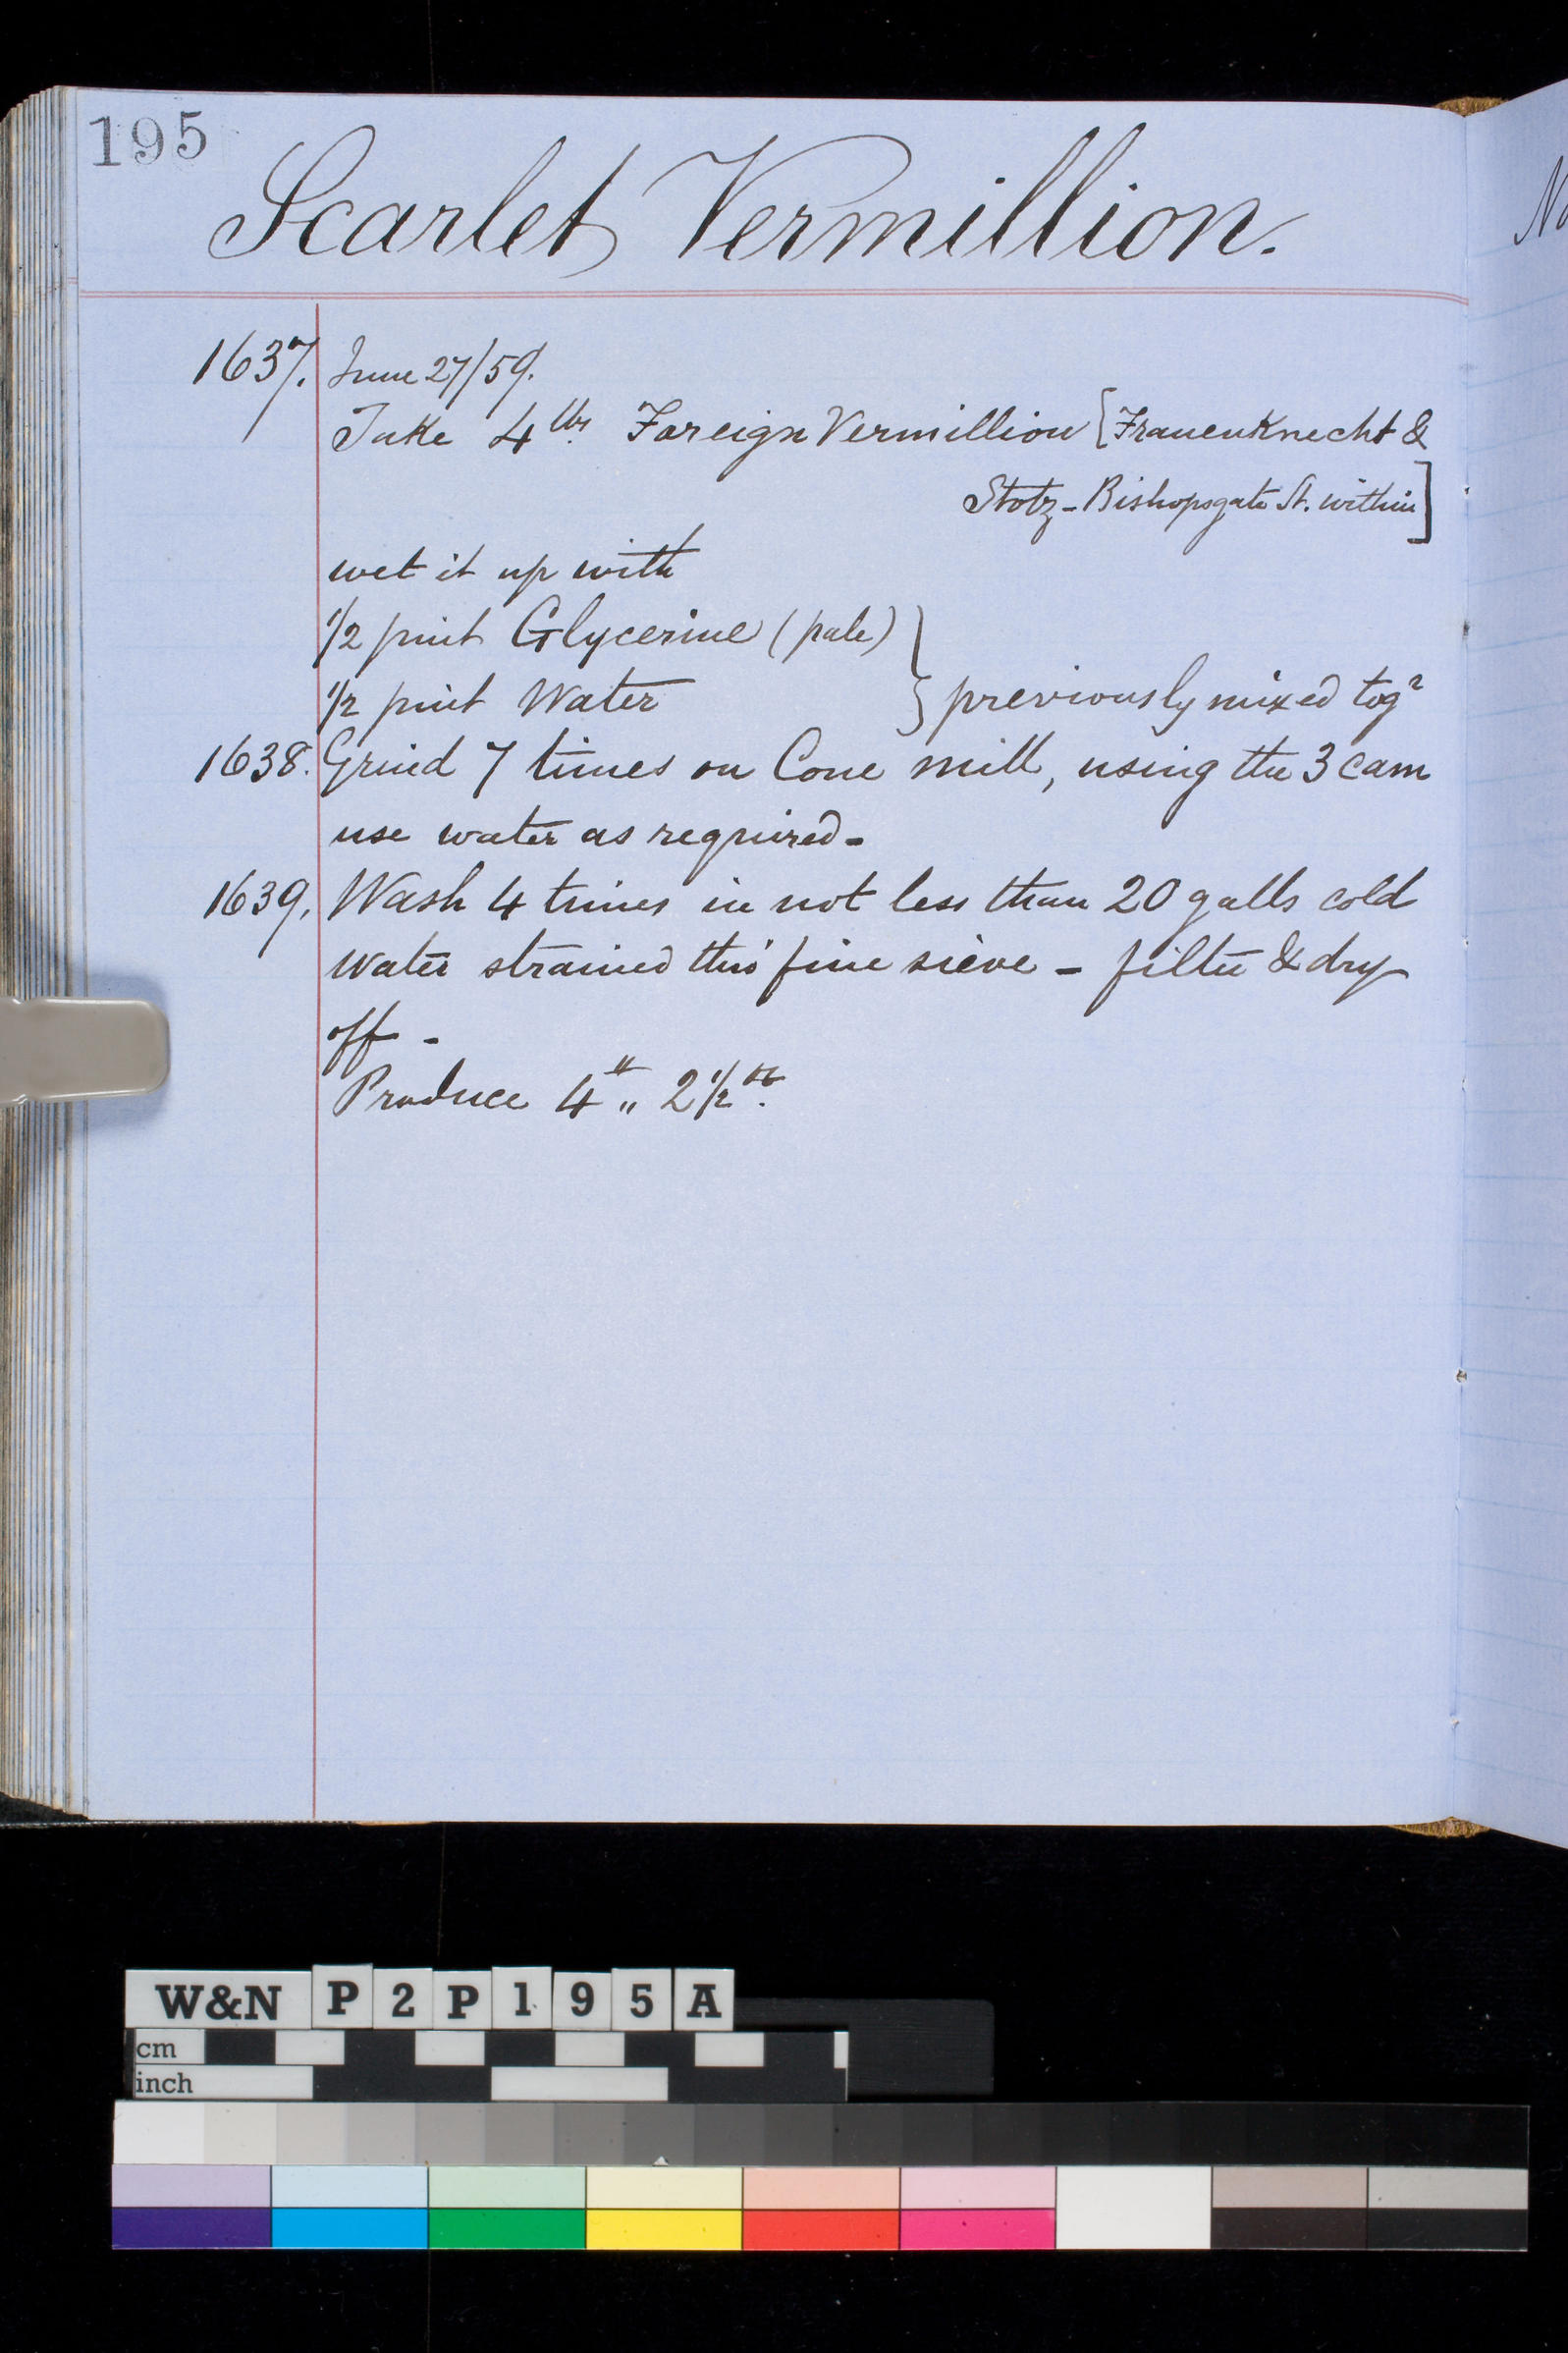 195
Scarlet Vermillion.
1637. June 27/59.
Take 4 lbs. Foreign Vermillion [Frauenknecht &
Stotz - Bishopsgate St. within]
wet it up with
1/2 pint Glycerine (pale) }
1/2 pint Water } previously mixed togr
1638. Grind 7 times on Cone mill, using the 3 cam
use water as required -
1639. Wash 4 times in not less than 20 galls cold
water strained thro' fine sieve - filter & dry
off -
Produce 4 lb „ 2 1/2 oz.
No
W&N P2P195A
cm
inch